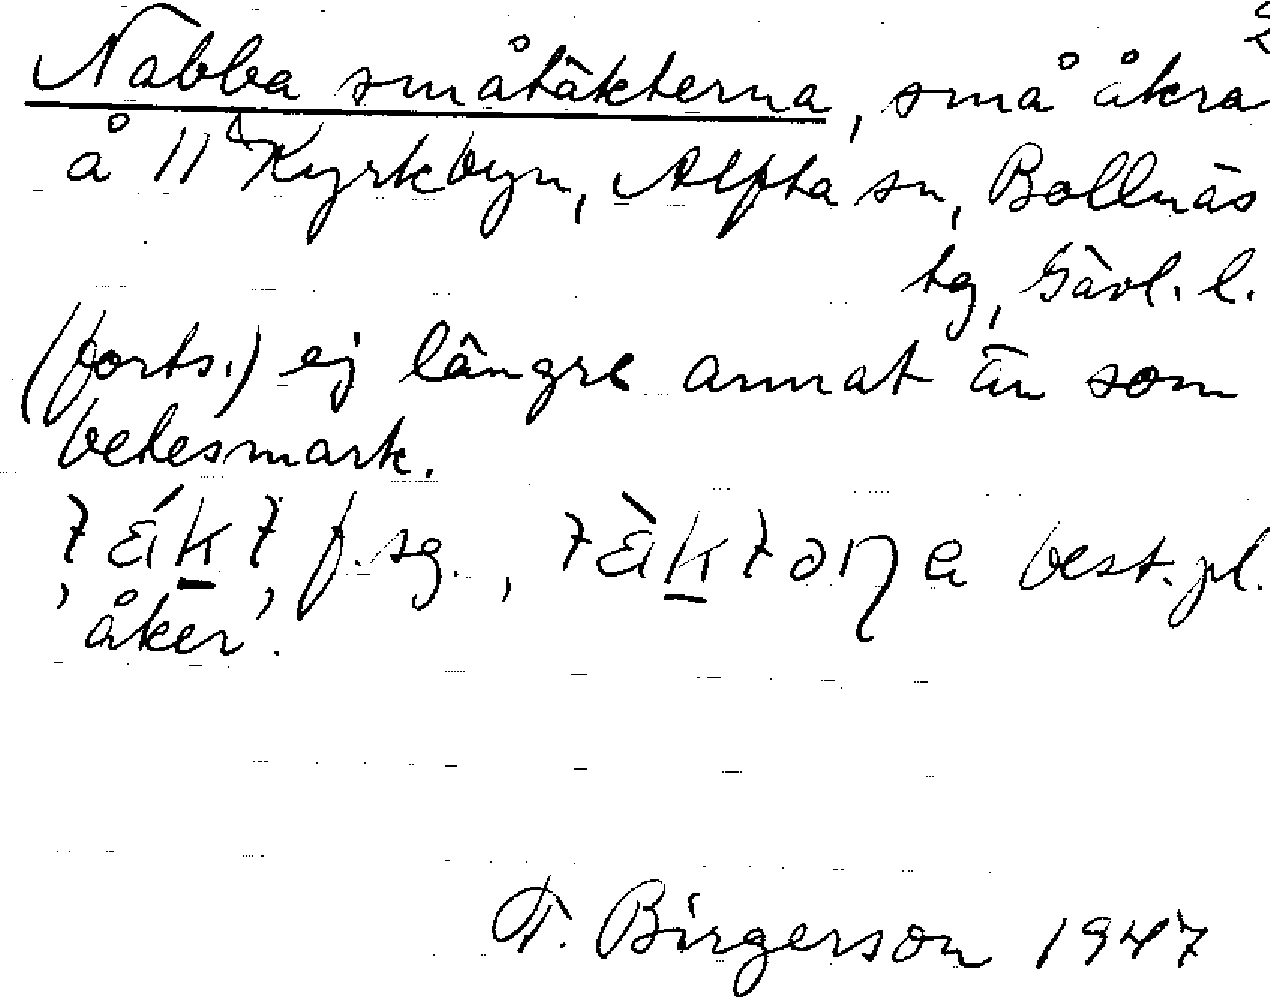 2
Nabba småtäkterna, små åkra
å 11 Kyrkbyn, Alfta sn, Bollnäs
tg, Gävl. l.
(forts.) ej längre annat än som
betesmark.
f. sg., best. pl.
åker.
F. Birgerson 1947